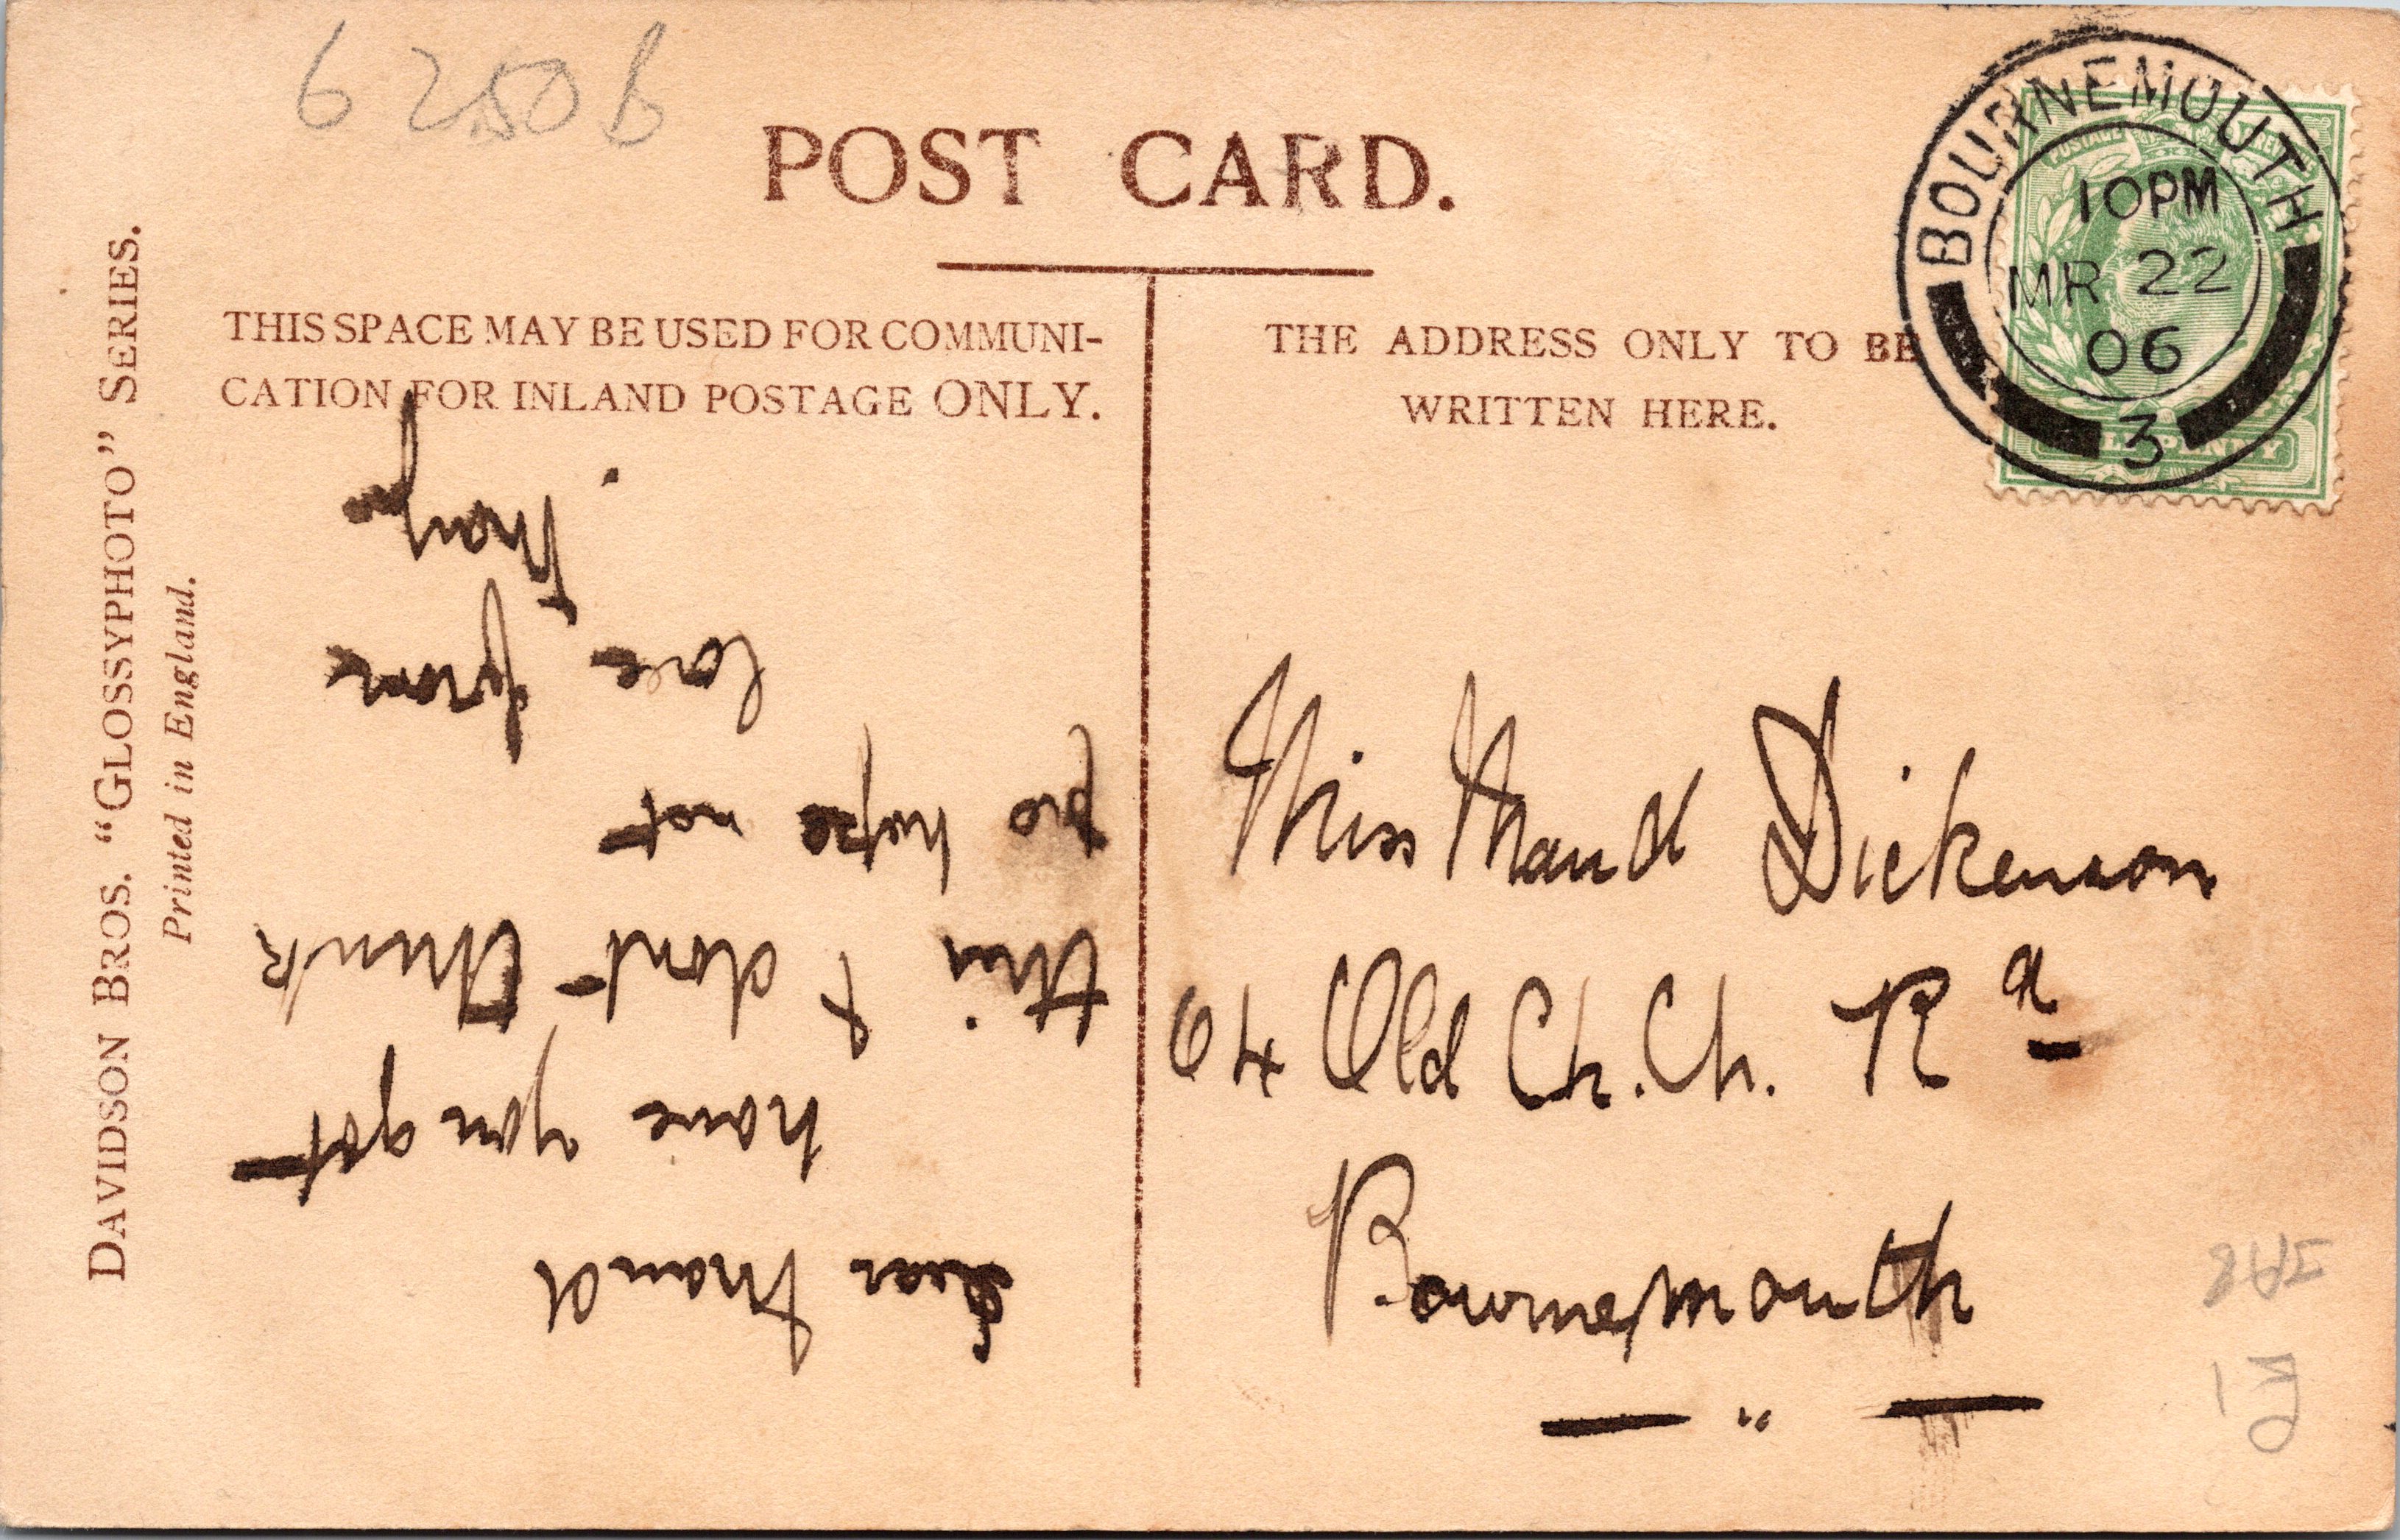 6250b
POST CARD.
DAVIDSON BROS. "GLOSSYPHOTO" SERIES.
Printed in England.
THIS SPACE MAY BE USED FOR COMMUNI-
CATION FOR INLAND POSTAGE ONLY.
THE ADDRESS ONLY TO BE
WRITTEN HERE.
BOURNEMOUTH
10PM
MR 22
06
3
Dear Maud
have you got
this & dont think
so hope not
love from
May
Miss Maud Dickenson
64 Old Ch. Ch. Rd
Bournemouth